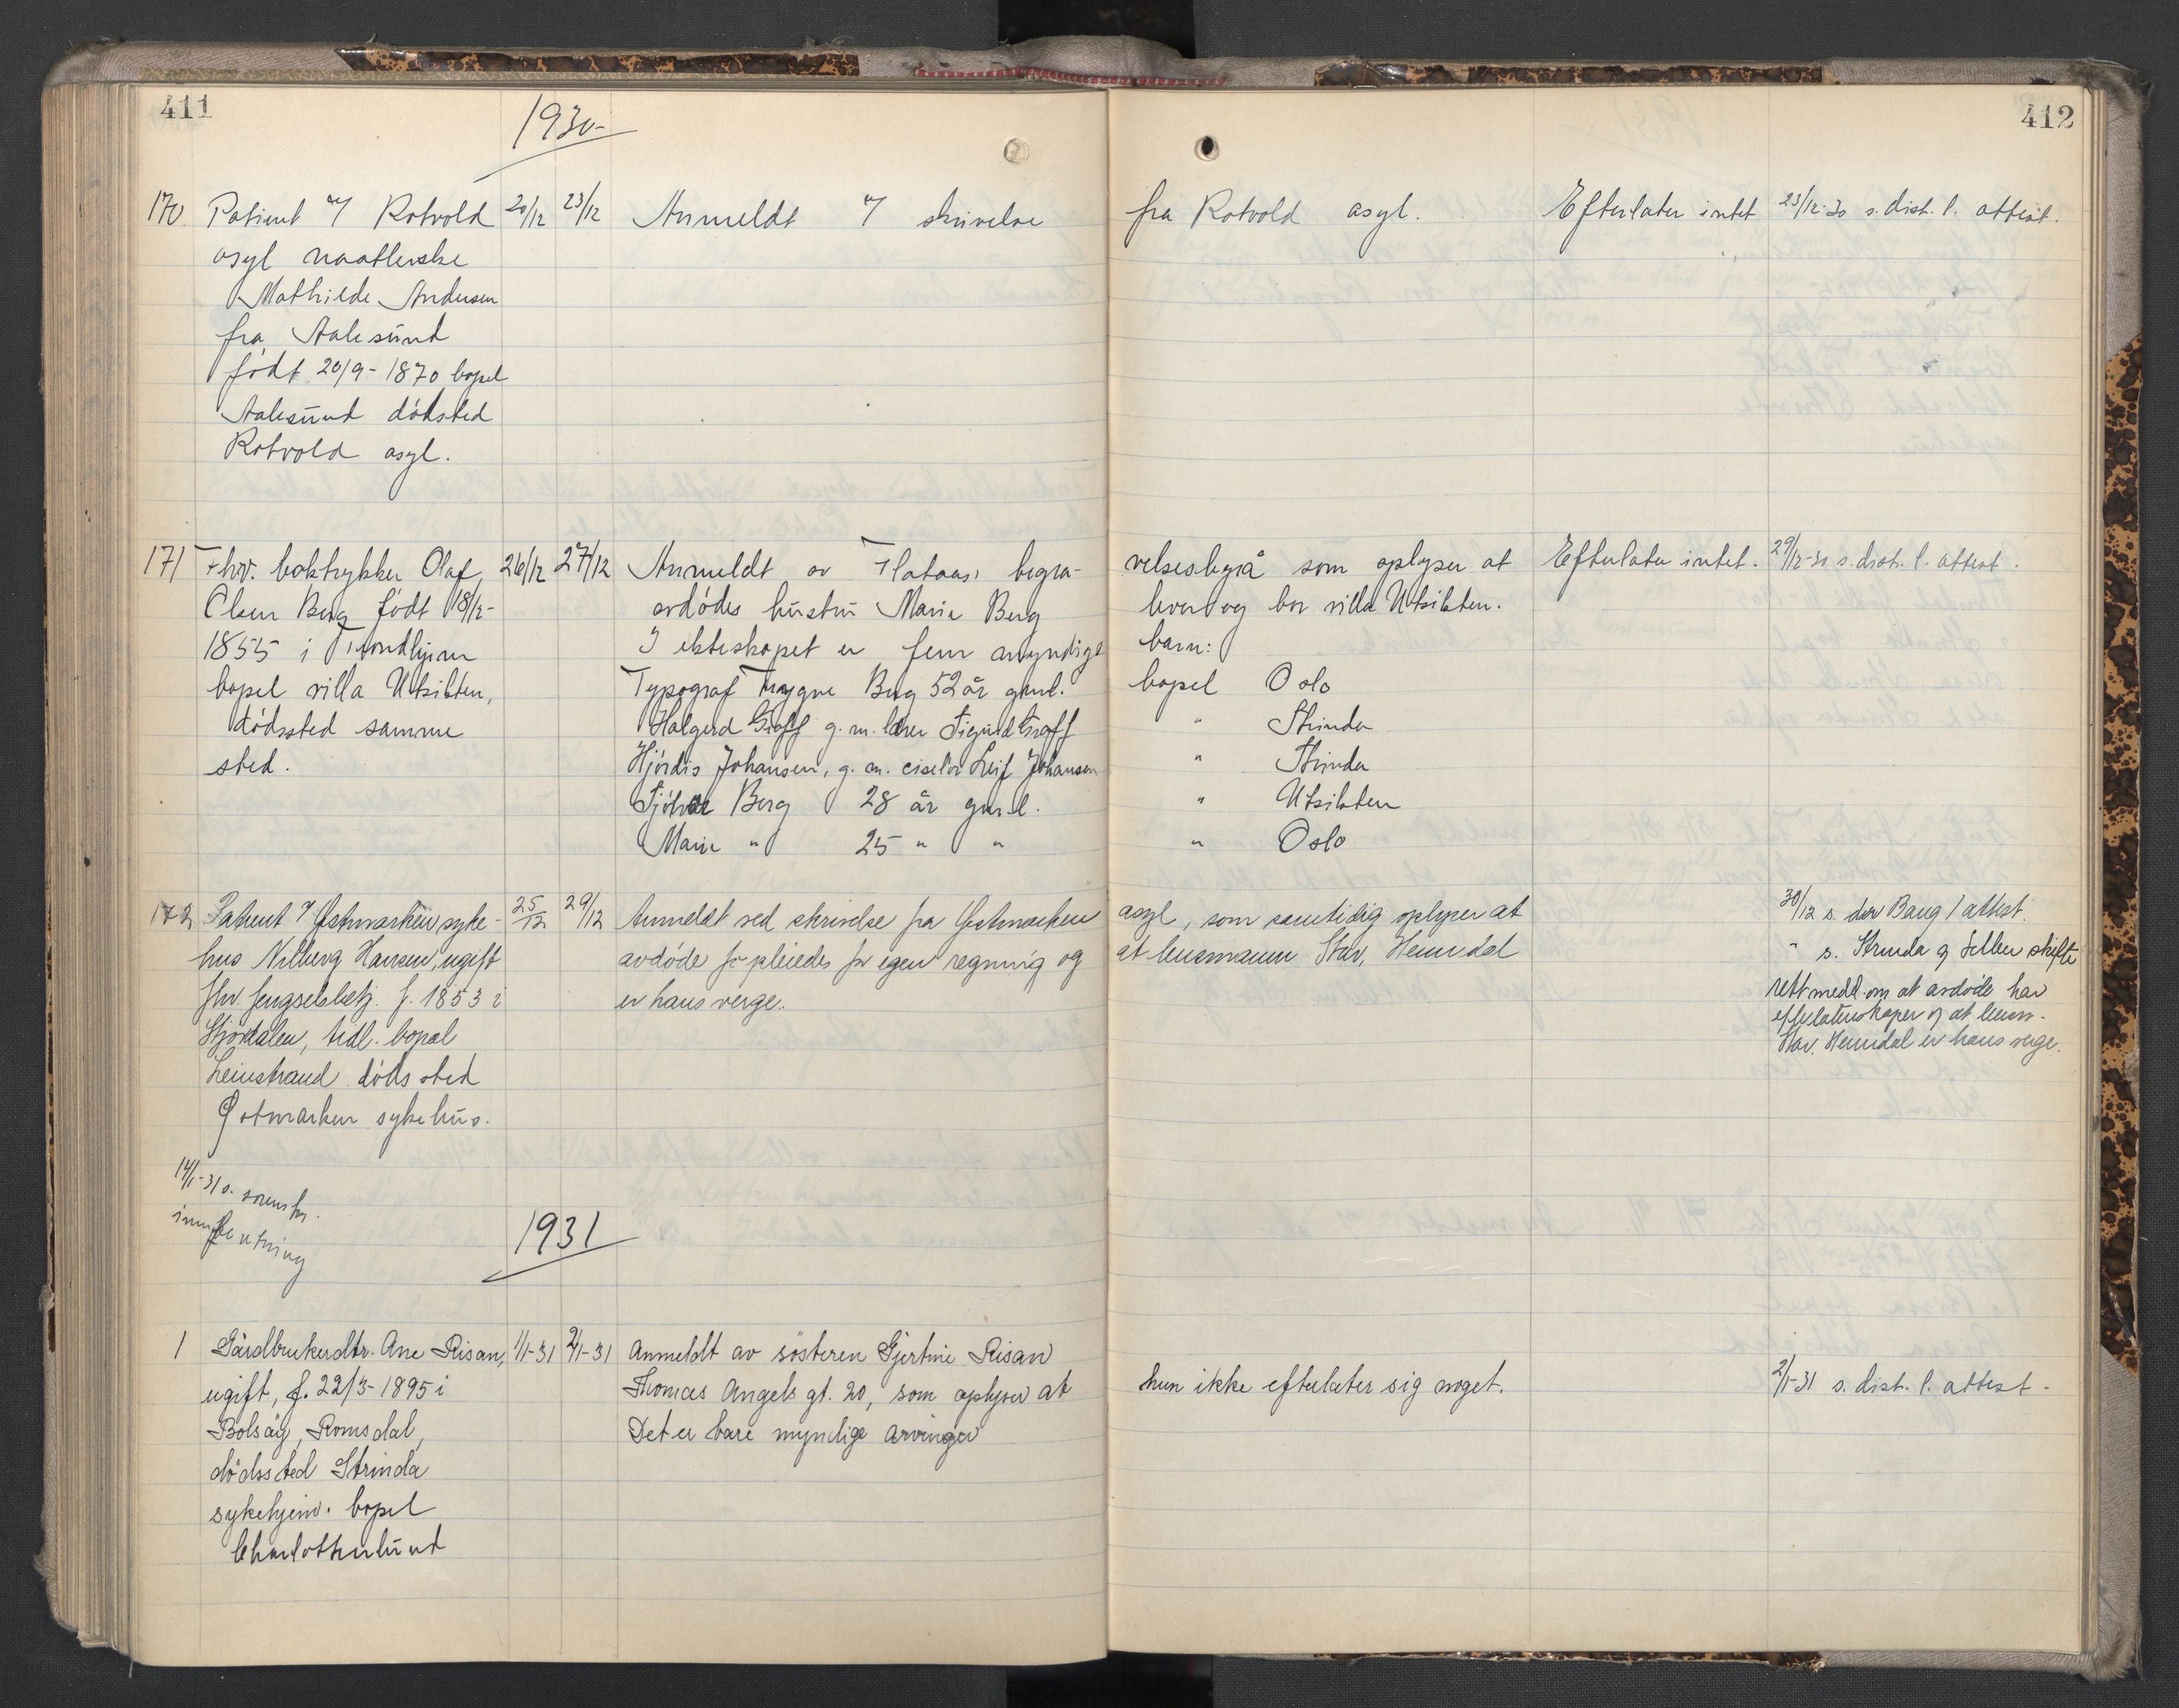 411
1930-
412
170 Patient v/ Rotvold 20/12 23/12 Anmeldt v/ skrivelse fra Rotvold asyl. Efterlater intet 23/12-30 s. dist. l. attest.
asyl
Mathilde Andersen
fra Aalesund
född 20/9-1870 bopel
Aalesund dödsted
Rotvold asyl.
171 Fhv. boktrykker Olaf 26/12 27/12 Anmeldt av Flataas, begra- velsesbyrå som oplyser at Efterlater intet. 29/12-30 s. dist. l. attest.
Olsen Berg född 18/12- avdödes hustru Marie Berg lever og bor villa Utsikten.
1855 i Trondhjem I ekteskapet er fem myndige barn:
bopel villa Utsikten, Typograf Trygve Berg 52 år gml. bopel Oslo
dödssted samme Halgerd Graff g. m. lærer Sigurd Graff " Strinda
sted. Hjördis Johansen, g. m. ciselör Leif Johansen " Strinda
Berg 28 år gml. " Utsikten
Marie " 25 " " " Oslo
172 Patient v/ Østmarken syke- 25/12 29/12 Anmeldt ved skrivelse fra Østmarken asyl, som samtidig oplyser at 30/12 s. der Baug l attest.
hus Hansen, ugift avdöde forpleiedes for egen regning og at lensmann Stav, Heimdal " s. Strinda og Selbu skifte
fhv. fengselsbetj. f. 1853 i er hans verge. rett medd. om at avdöde har
Stjördalen, tidl. bopel efterlatenskaper og at lensm.
Leinstrand dödssted Stav, Heimdal er hans verge.
Østmarken sykehus.
14/1-31 s. sorenskr.
innberetning
1931
1 Gårdbrukerdtr. Ane Risan, 1/1-31 2/1-31 Anmeldt av søsteren Gjertine Risan
ugift, f. 22/3-1895 i Thomas Angels gt. 20, som oplyser at hun ikke efterlater sig noget. 2/1-31 s. dist. l. attest-
Bolsöy, Romsdal, Det er bare myndige arvinger
dödssted Strinda
sykehjem. bopel
Charlottenlund